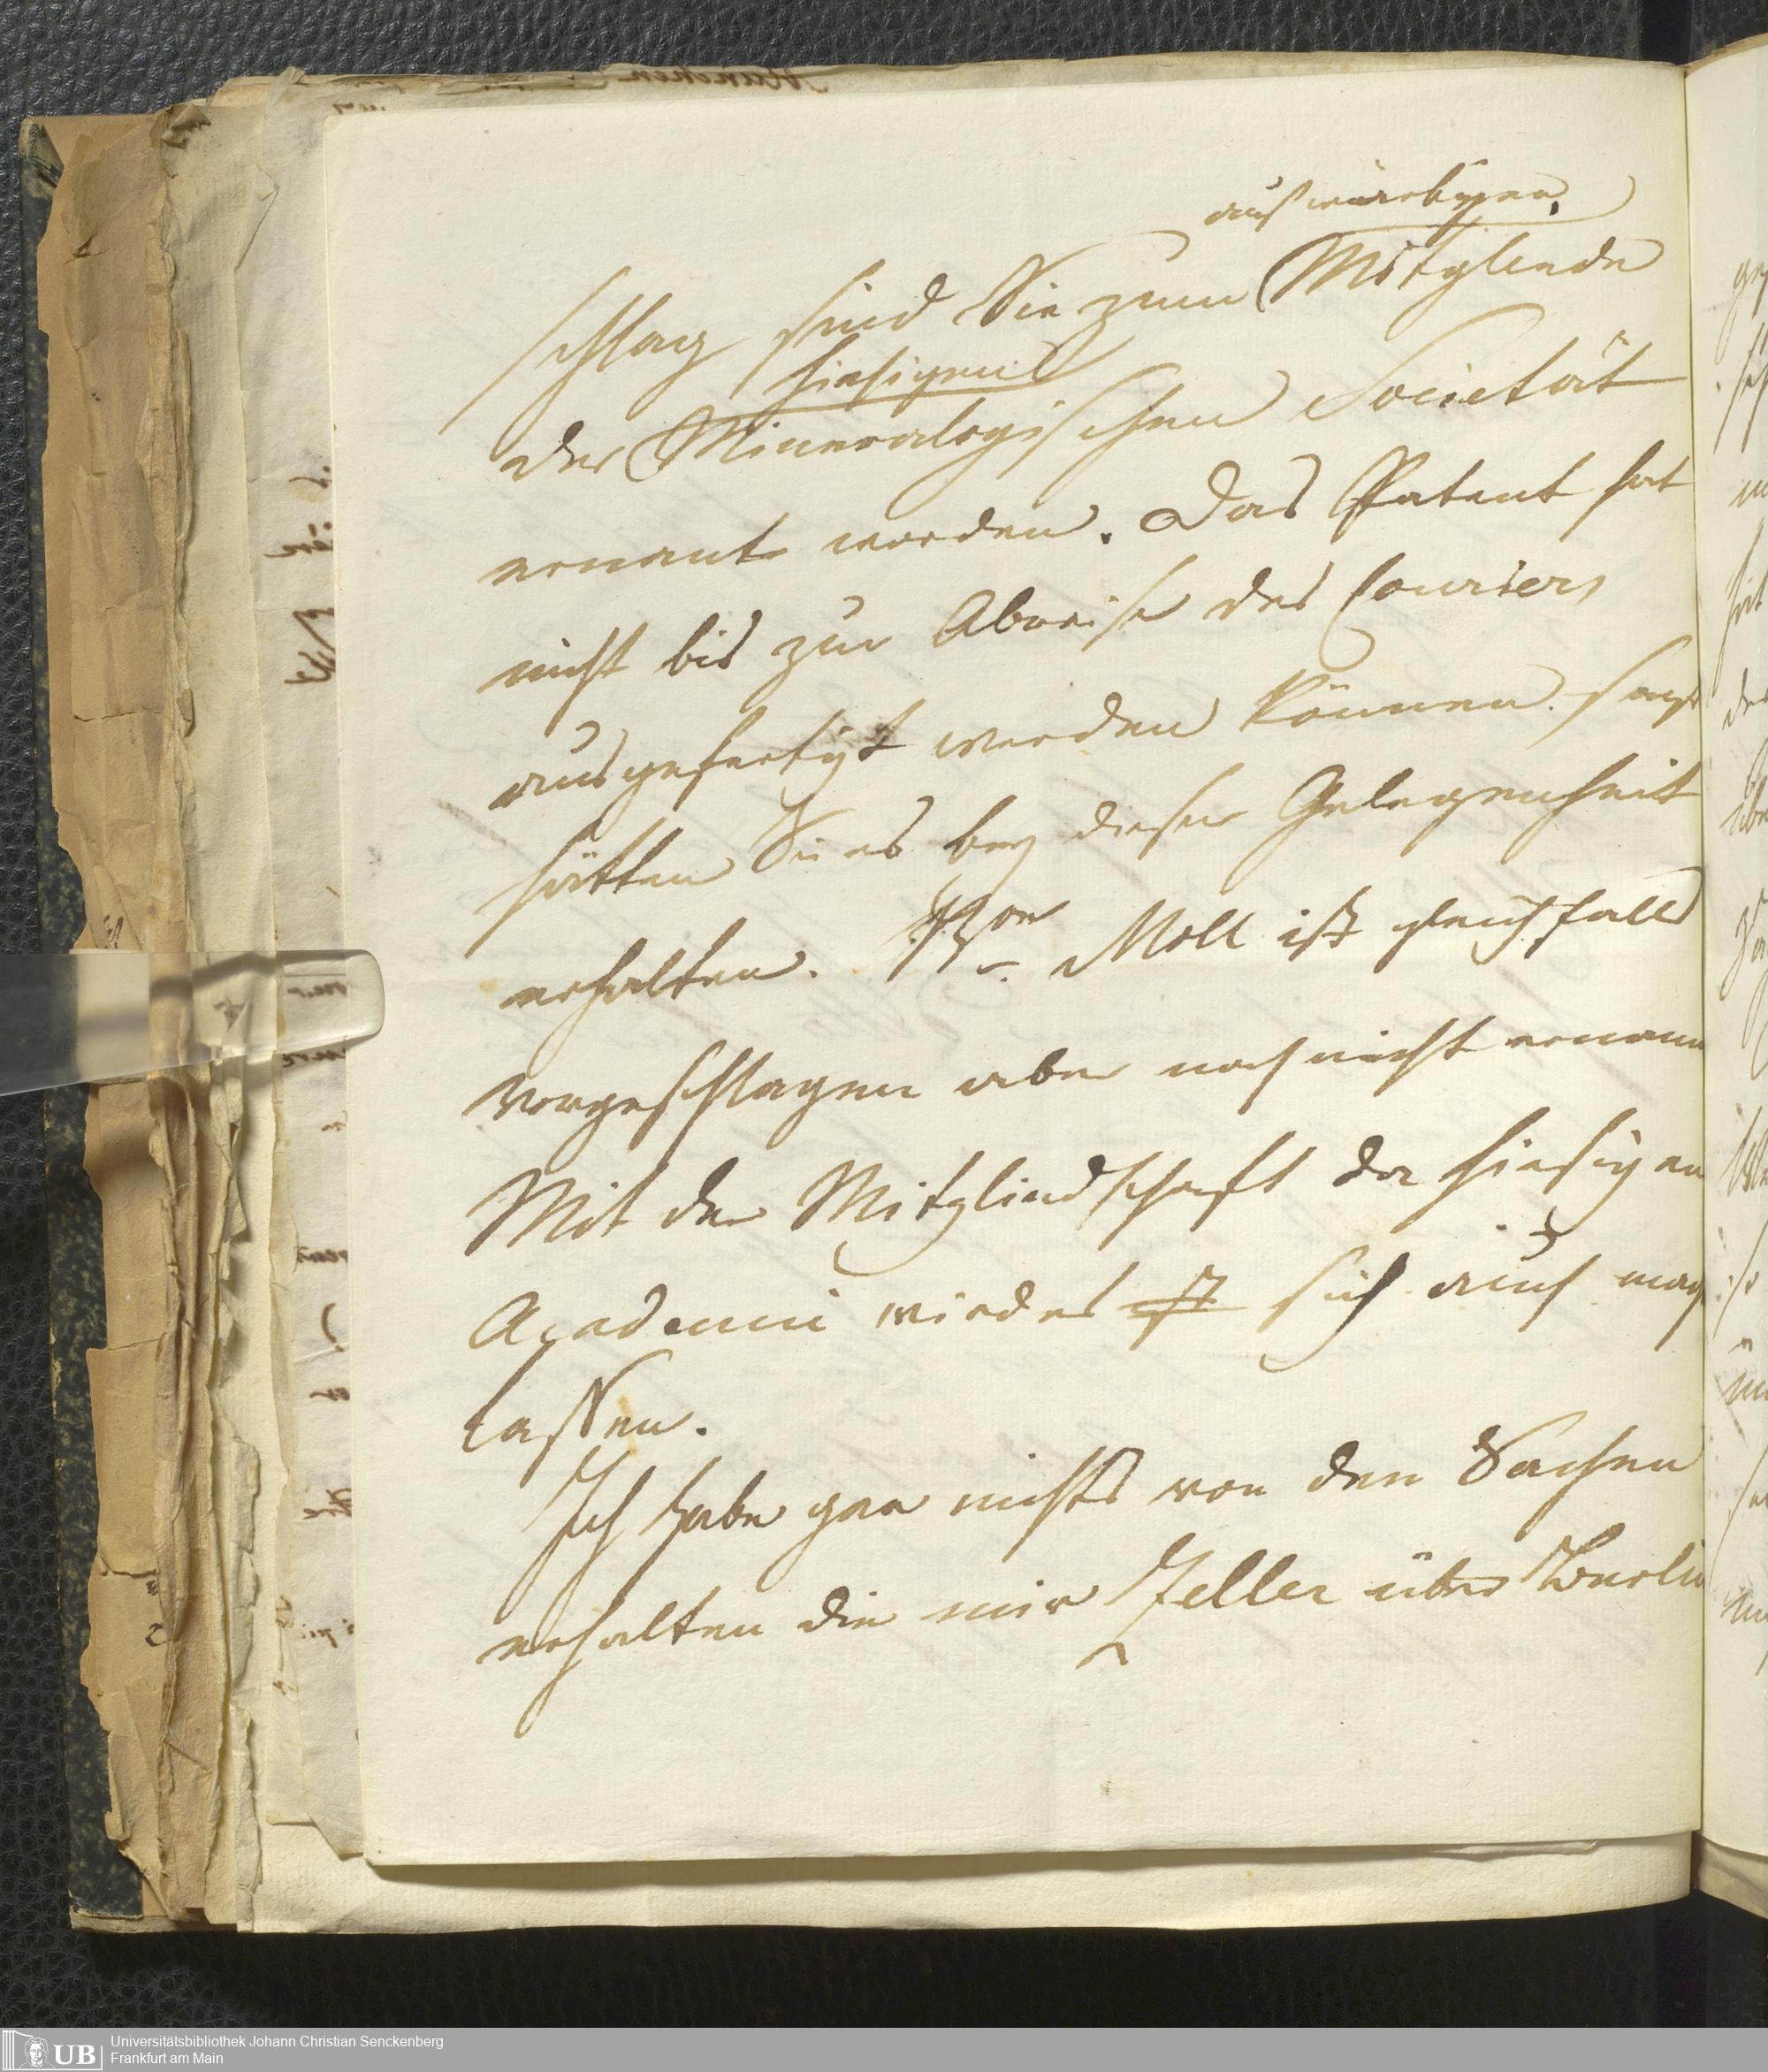 auswärtigen
schlag sind Sie zum Mitgliede
hiesigen
der Mineralogischen Societät
ernant worden. Das Patent hat
nicht bis zur Abreise des Couriers
ausgefertigt werden können sonst
hätten Sie es bey dieser Gelegenheit
erhalten. Moll ist gleichfalls
vorgeschlagen aber noch nicht ernann
Mit der Mitgliedschaft der hiesigen
Academie wird es sich auch mach
lassen.
Ich habe gar nichts von den Sachen
erhalten die mir Zeller über Berlin
Universitätsbibliothek Johann Christian Senckenberg
Frankfurt am Main
UB